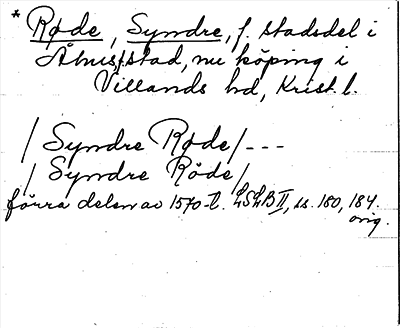 * Røde, Syndre, f. stadsdel i
Åhus, stad, nu köping i
Villands hd, Krist. l.
/ Syndre Røde / ---
/ Syndre Röde /
förra delen av 1570-t. LSLB II, ss. 180, 184.
orig.